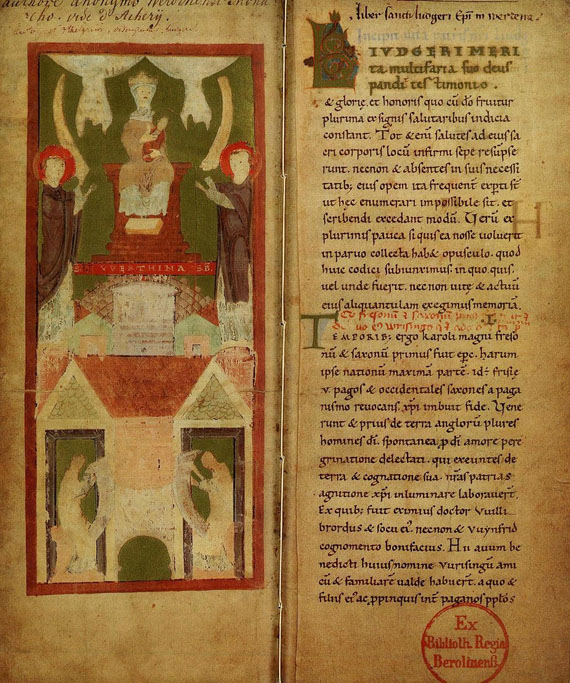 authore anonymo Werdinensi Mona
cho. vide d'Achery.
VVERTHINA
liber sancti ludgeri Epi in werdena.
LIVDGERI MERI
ta multifaria suo deus
pandit testimonio.
& glorię et honoris quo cū dō fruitur
plurima ex signis salutaribus indicia
constant. Tot & enī salutes ad eius sa
cri corporis locū infirmi sepe resūpse
runt. necnon & absentes in suis necessi
tatib; eius opem ita frequent experti sī
ut hęc enumerari impossibile sit. et
scribendi excedant modū. Verū ex
plurimis pauca si quis ea nosse voluerit
in parvo collecta hab& opusculo. quod
huic codici subiunximus. in quo. quis.
vel unde fuerit. necnon vitę & actuū
eius aliquantulam exegimus memoriā.
TEMPORIB; ergo karoli magni freso
nū & saxonū primus fuit epc. harum
ipse nationū maxima parte. id÷ frisię
v. pagos & occidentales saxones a paga
nismo revocans. xp̄i imbuit fide. Vene
runt & prius de terra anglorū plures
homines dī. spontanea. p dī amore pere
grinatione delectati. qui exeuntes de
terra & cognatione sua. nr̄as patrias
agnitione xp̄i inluminare laboraverī.
Ex quib; fuit eximius doctor Vuilli
brordus & socii ei. necnon & vuynfrid
cognomento bonifacius. Hi avum be
nedicti huius nomine vursingū ami
cū & familiarē valde habuerī. a quo &
filiis ei ac ppinquis int paganos ppłos
Ex
Biblioth. Regia
Berolinensi.